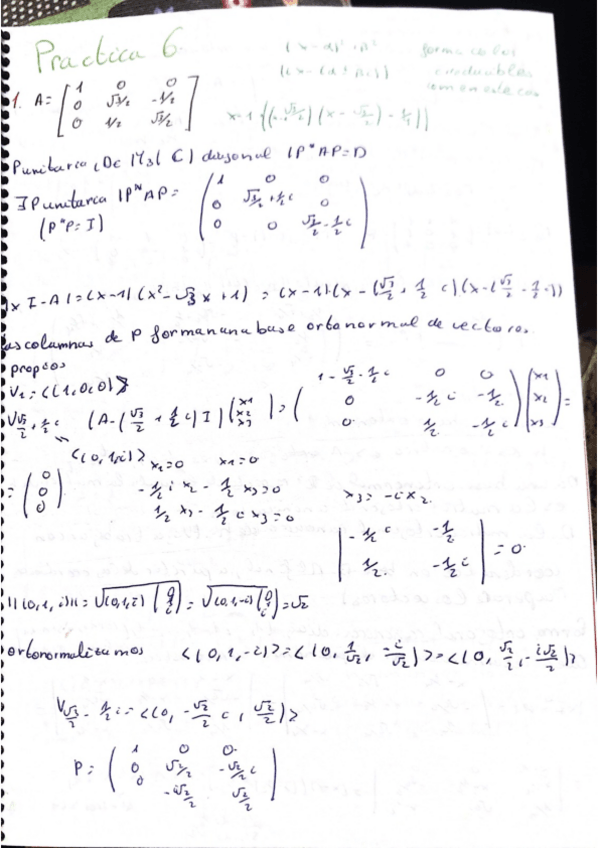 Practica 6.
(x-a)² + b²
forma co los
(x-(a+bi))
irreducibles
1. A = [1 0 0
0 √3/2 -1/2
0 1/2 √3/2]
x-1 {(x-√3/2)(x-√3/2)-1/4)}
P unitaria ¿De M3(C) diagonal |P*AP=D
∃ P unitaria |P*AP= (1 0 0
0 √3/2+1/2 i 0
0 0 √3/2-1/2 i)
(P*P=I)
|x I-A|=(x-1)(x²-√3 x+1) = (x-1)(x-(√3/2+1/2 i)(x-(√3/2-1/2 i))
as columnas de P forman una base ortonormal de vectores
propios
V1=<(1,0,0)>
V√3/2+1/2 i (A-(√3/2+1/2 i)I)(x1 x2 x3)=(1-√3/2-1/2 i 0 0
0 -1/2 i -1/2
0 1/2 -1/2 i)(x1 x2 x3)=
<(0,1,i)>
x1=0 x1=0
=(0 0 0)
-1/2 i x2 - 1/2 x3=0
x3=-i x2.
1/2 x2 - 1/2 i x3=0
|-1/2 i -1/2
1/2 -1/2 i|=0
||(0,1,i)||=√(0,1,i)(0 1 i)=√(0,1,-i)(0 1 i)=√2
ortonormalizamos <(0,1,-i)>=<(0,1/√2,-i/√2)>=<(0,√2/2,-i√2/2)>
V√3/2-1/2 i=<(0,-√2/2 i,√2/2)>
P=(1 0 0
0 √2/2 -√2/2 i
0 -i√2/2 √2/2)